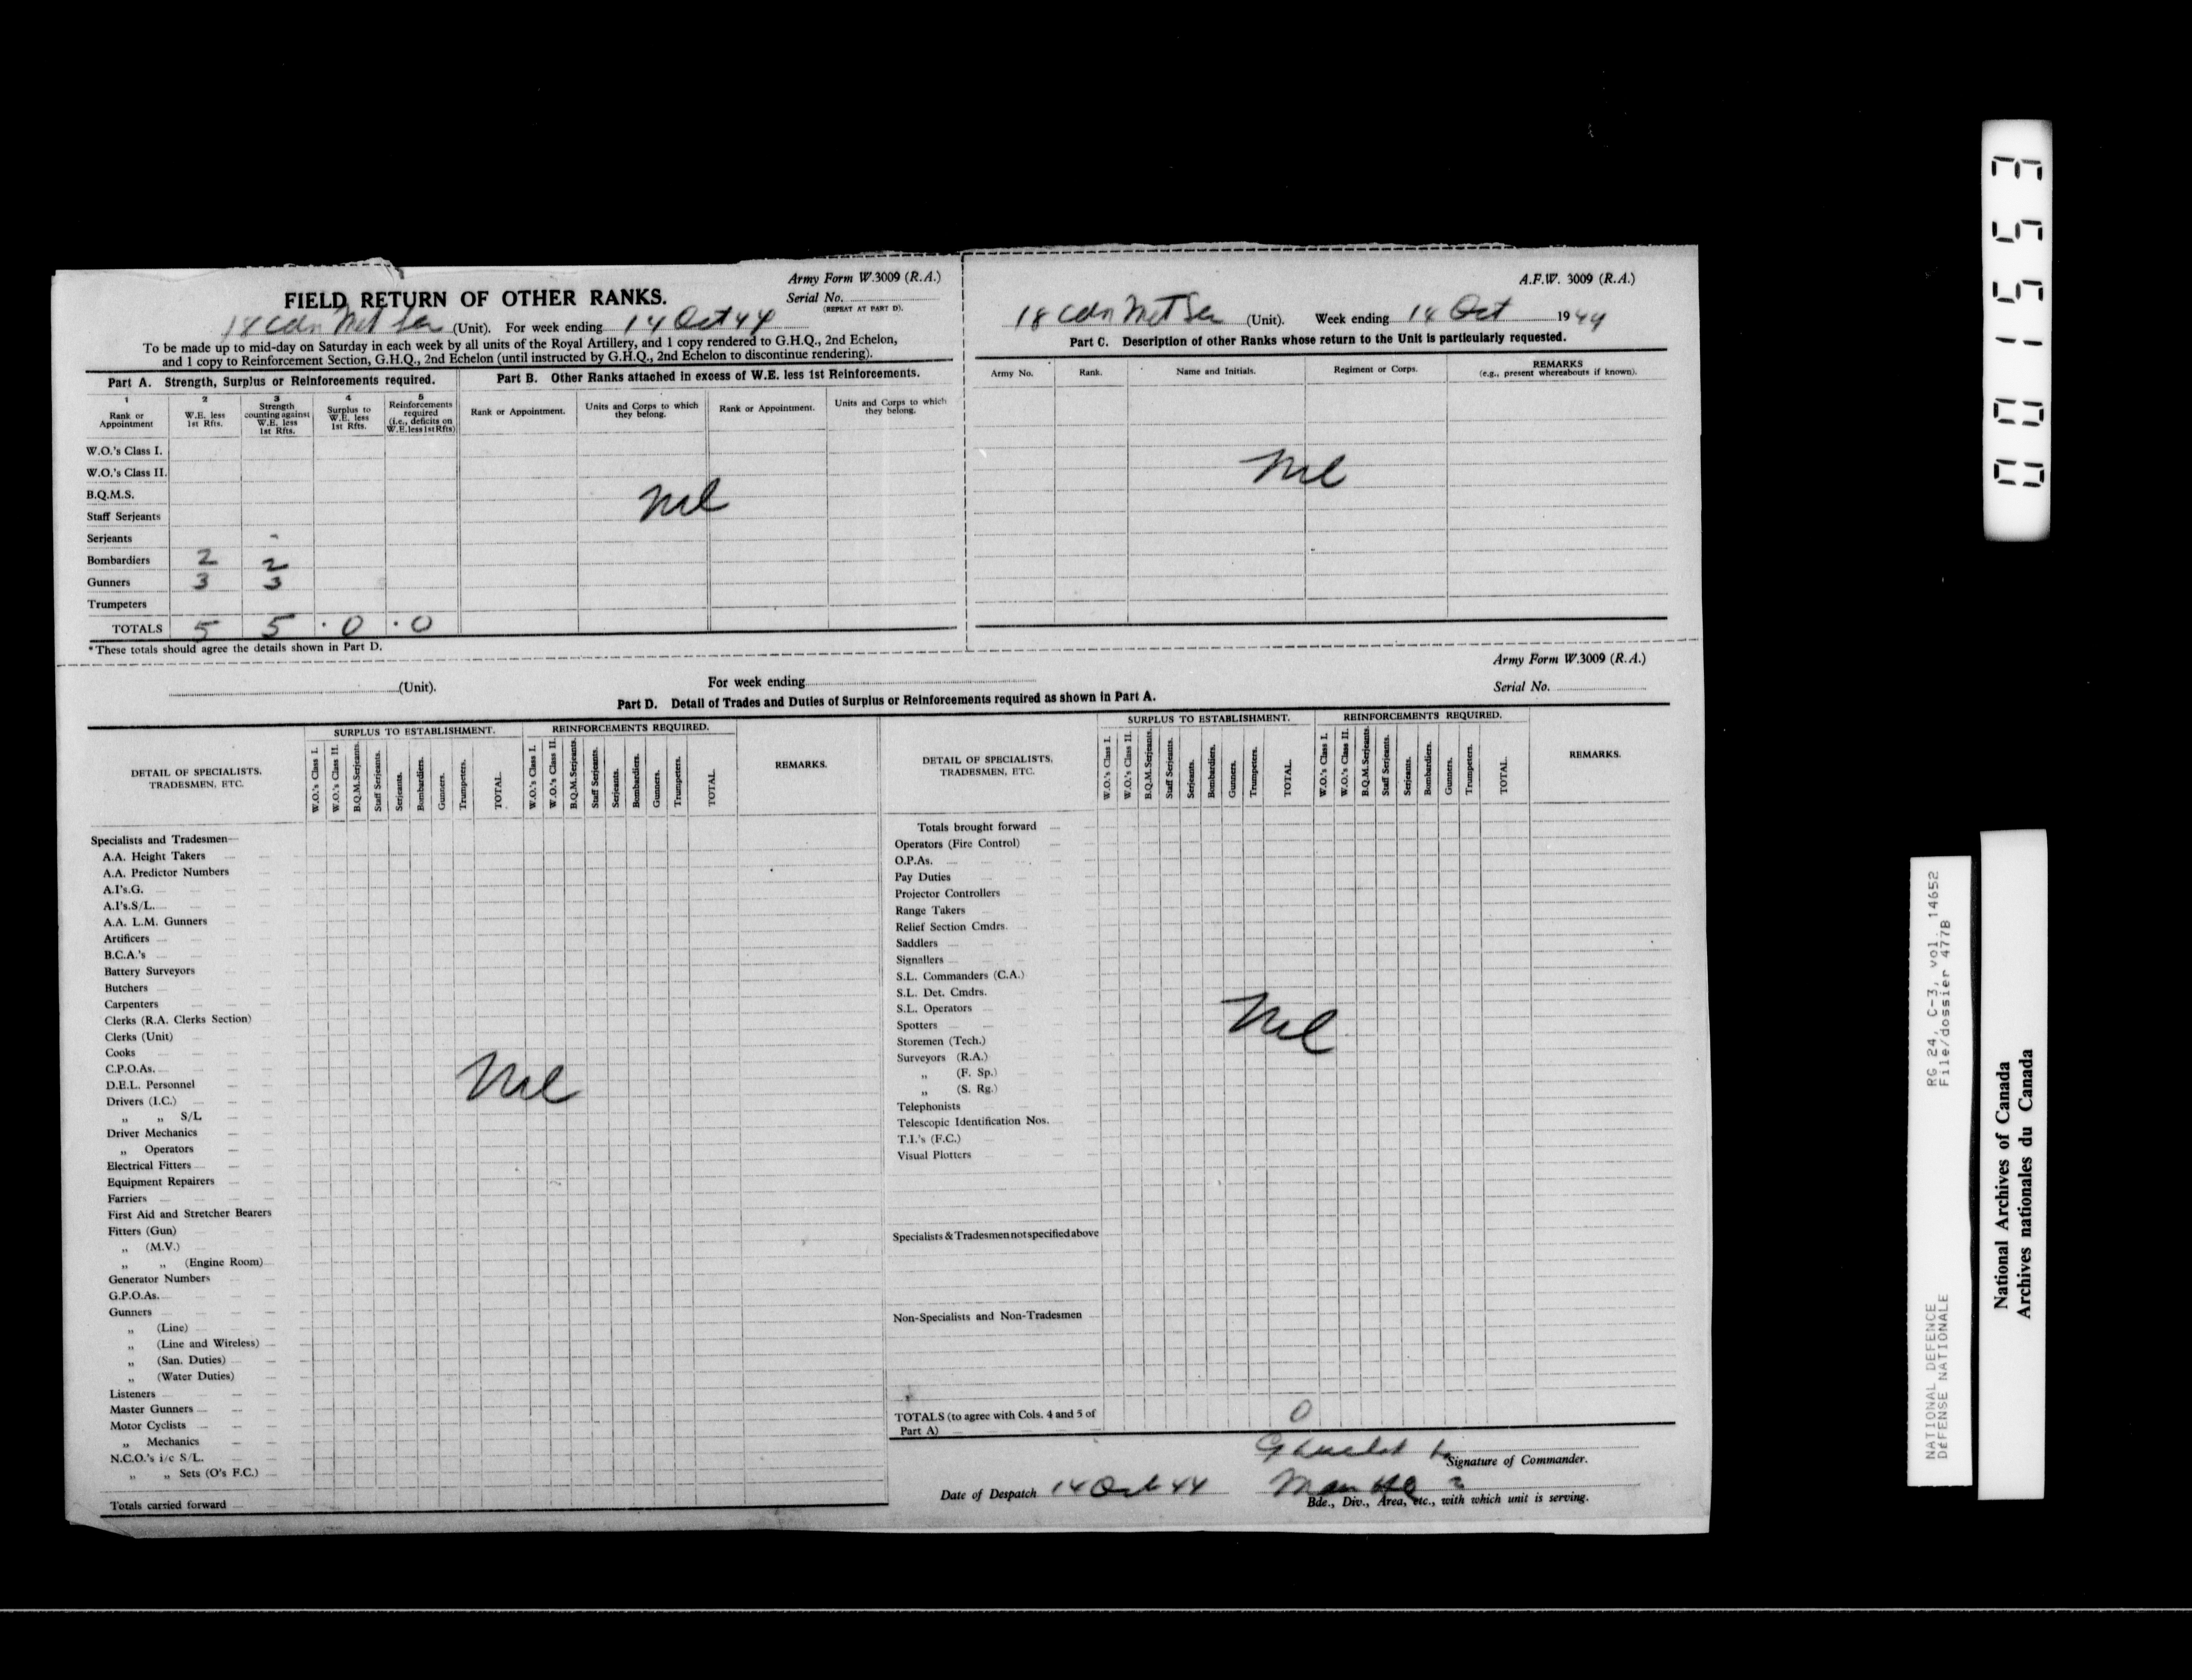 Army Form W.3009 (R.A.)
FIELD RETURN OF OTHER RANKS.
Serial No.
(REPEAT AT PART D).
18 Cdn Met Sec (Unit). For week ending 14 Oct 44
To be made up to mid-day on Saturday in each week by all units of the Royal Artillery, and 1 copy rendered to G.H.Q., 2nd Echelon,
and 1 copy to Reinforcement Section, G.H.Q., 2nd Echelon (until instructed by G.H.Q., 2nd Echelon to discontinue rendering).
Part A. Strength, Surplus or Reinforcements required.
1 2 3 4 5
Rank or Appointment
W.E. less 1st Rfts.
Strength counting against W.E. less 1st Rfts.
Surplus to W.E. less 1st Rfts.
Reinforcements required (i.e., deficits on W.E. less 1st Rfts)
W.O.'s Class I.
W.O.'s Class II.
B.Q.M.S.
Staff Serjeants
Serjeants -
Bombardiers 2 2
Gunners 3 3
Trumpeters
TOTALS 5 5 · 0 · 0
*These totals should agree the details shown in Part D.
Part B. Other Ranks attached in excess of W.E. less 1st Reinforcements.
Rank or Appointment. Units and Corps to which they belong. Rank or Appointment. Units and Corps to which they belong.
Nil
A.F.W. 3009 (R.A.)
18 Cdn Met Sec (Unit). Week ending 14 Oct 1944
Part C. Description of other Ranks whose return to the Unit is particularly requested.
Army No. Rank. Name and Initials. Regiment or Corps. REMARKS
(e.g., present whereabouts if known).
Nil
Army Form W.3009 (R.A.)
(Unit). For week ending
Serial No.
Part D. Detail of Trades and Duties of Surplus or Reinforcements required as shown in Part A.
DETAIL OF SPECIALISTS, TRADESMEN, ETC.
SURPLUS TO ESTABLISHMENT.
W.O.'s Class I. W.O.'s Class II. B.Q.M. Serjeants. Staff Serjeants. Serjeants. Bombardiers. Gunners. Trumpeters. TOTAL.
REINFORCEMENTS REQUIRED.
W.O.'s Class I. W.O.'s Class II. B.Q.M. Serjeants. Staff Serjeants. Serjeants. Bombardiers. Gunners. Trumpeters. TOTAL.
REMARKS.
Specialists and Tradesmen—
A.A. Height Takers
A.A. Predictor Numbers
A.I's.G.
A.I's.S/L.
A.A. L.M. Gunners
Artificers
B.C.A.'s
Battery Surveyors
Butchers
Carpenters
Clerks (R.A. Clerks Section)
Clerks (Unit)
Cooks
C.P.O.As.
D.E.L. Personnel
Drivers (I.C.)
„ „ S/L
Driver Mechanics
„ Operators
Electrical Fitters
Equipment Repairers
Farriers
First Aid and Stretcher Bearers
Fitters (Gun)
„ (M.V.)
„ „ (Engine Room)
Generator Numbers
G.P.O.As.
Gunners
„ (Line)
„ (Line and Wireless)
„ (San. Duties)
„ (Water Duties)
Listeners
Master Gunners
Motor Cyclists
„ Mechanics
N.C.O.'s i/c S/L.
„ „ Sets (O's F.C.)
Totals carried forward
Nil
DETAIL OF SPECIALISTS, TRADESMEN, ETC.
SURPLUS TO ESTABLISHMENT.
W.O.'s Class I. W.O.'s Class II. B.Q.M. Serjeants. Staff Serjeants. Serjeants. Bombardiers. Gunners. Trumpeters. TOTAL.
REINFORCEMENTS REQUIRED.
W.O.'s Class I. W.O.'s Class II. B.Q.M. Serjeants. Staff Serjeants. Serjeants. Bombardiers. Gunners. Trumpeters. TOTAL.
REMARKS.
Totals brought forward
Operators (Fire Control)
O.P.As.
Pay Duties
Projector Controllers
Range Takers
Relief Section Cmdrs.
Saddlers
Signallers
S.L. Commanders (C.A.)
S.L. Det. Cmdrs.
S.L. Operators
Spotters
Storemen (Tech.)
Surveyors (R.A.)
„ (F. Sp.)
„ (S. Rg.)
Telephonists
Telescopic Identification Nos.
T.I.'s (F.C.)
Visual Plotters
Specialists & Tradesmen not specified above
Non-Specialists and Non-Tradesmen
Nil
TOTALS (to agree with Cols. 4 and 5 of Part A) 0
Signature of Commander.
Date of Despatch 14 Oct 44
Bde., Div., Area, etc., with which unit is serving.
001553
RG 24, C-3, vol. 14652
File/dossier 477B
NATIONAL DEFENCE
DÉFENSE NATIONALE
National Archives of Canada
Archives nationales du Canada